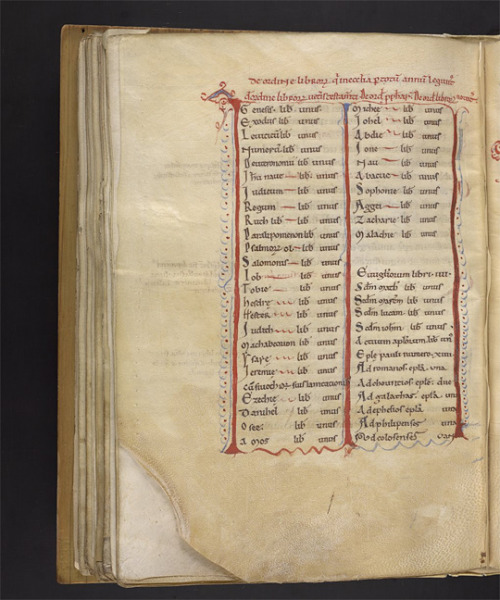 De ordine librorum qui in ecclia p totum annū leguntur
Genesis. lib unus
Exodus lib unus
Leuiticus lib unus
Numerus lib unus
Deuteronomii lib unus
Ihu naue lib unus
Iudicum lib unus
Regum lib
Ruth lib unus
Paralipomenon lib unus
Psalmorum
Salomonis lib unus
Iob lib unus
Tobie lib unus
Hesdre lib unus
Hester lib unus
Iudith lib unus
Machabeorum lib unus
Ysaye lib unus
Ieremie lib unus
Ezechie lib unus
Danihel lib unus
Osee: lib unus
Amos lib unus
Micheē lib unus
Iohel lib unus
Abdie lib unus
Ione lib unus
Nau lib unus
Abacuc lib unus
Sophonie lib unus
Aggei lib unus
Zacharie lib unus
Malachie lib unus
Euugliorum libri .iiii.
Sdm math lib unus
Sdm marcm lib unus
Sdm lucam lib unus
Sdm iohm lib unus
Actuum aplorum lib un9
Eple pauli numero. xiiii
Ad romanos. epla una
Ad chorintios eple. due
Ad galathas. epla. una
Ad ephesios epla una
Ad philipenses una
Ad colosenses una